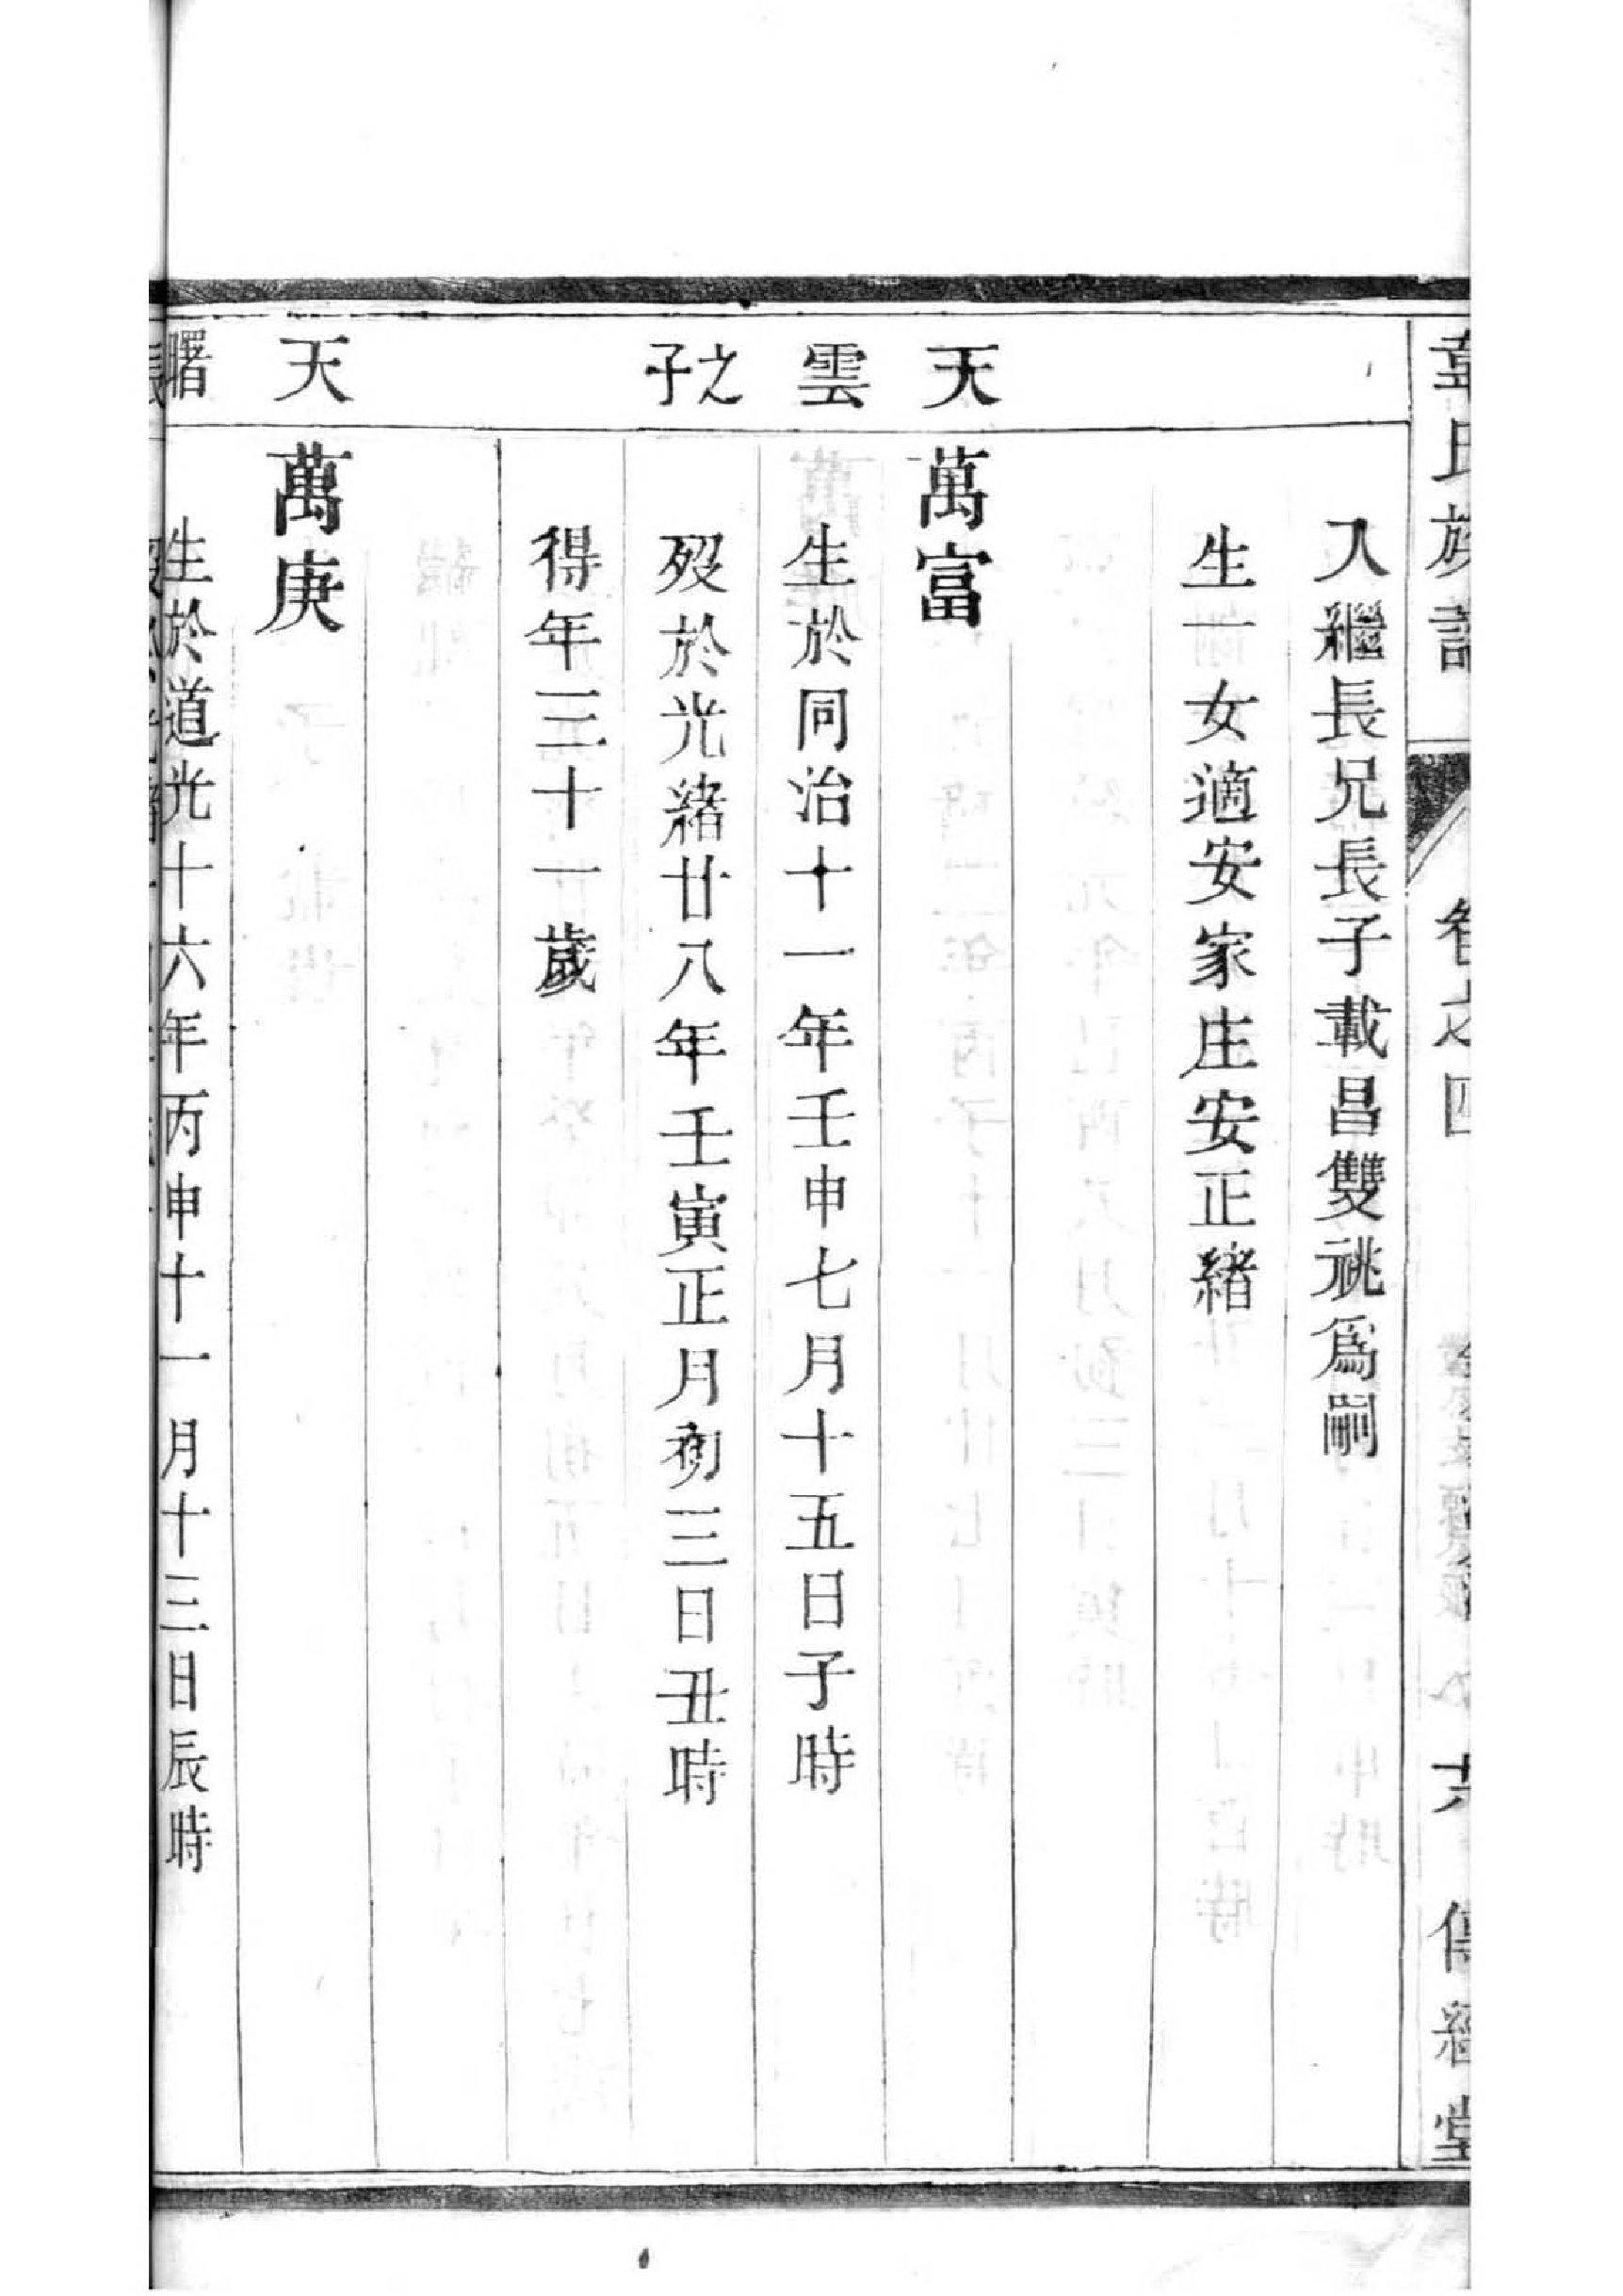 章氏族譜 卷之四 六 傳經堂
入繼長兄長子載昌雙祧爲嗣
生一女適安家庄安正緒
天雲之子
萬富
生於同治十一年壬申七月十五日子時
歿於光緒廿八年壬寅正月初三日丑時
得年三十一歲
天曙
萬庚
生於道光十六年丙申十一月十三日辰時